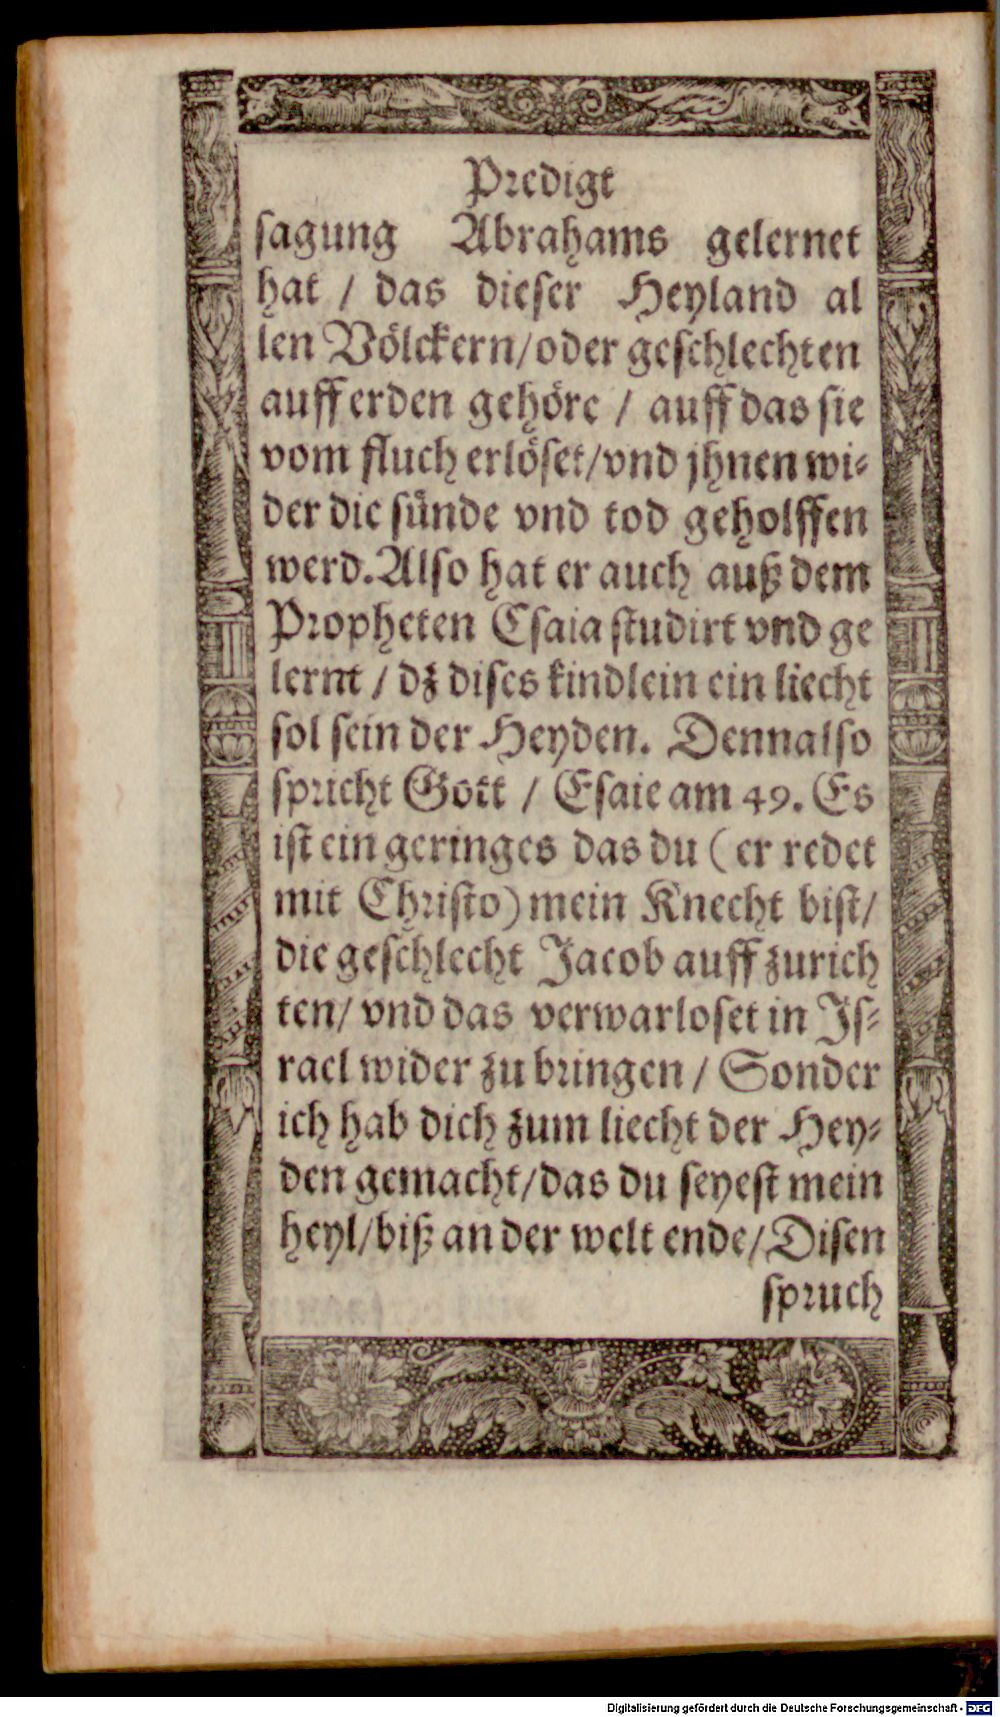 Predigt
ſagung Abrahams gelernet
hat / das dieſer Heyland al
len Völckern/oder geſchlechten
auff erden gehöre / auff das ſie
vom fluch erlöſet/vnd jhnen wi⸗
der die ſünde vnd tod geholffen
werd. Alſo hat er auch auß dem
Propheten Eſaia ſtudirt vnd ge
lernt / dz diſes kindlein ein liecht
ſol ſein der Heyden. Dennalſo
ſpricht Gott / Eſaie am 49. Es
iſt ein geringes das du (er redet
mit Chriſto) mein Knecht biſt/
die geſchlecht Jacob auff zurich
ten/ vnd das verwarloſet in Jſ⸗
rael wider zu bringen / Sonder
ich hab dich zum liecht der Hey⸗
den gemacht/das du ſeyeſt mein
heyl/biß an der welt ende/Diſen
ſpruch
Digitalisierung gefördert durch die Deutsche Forschungsgemeinschaft - DFG